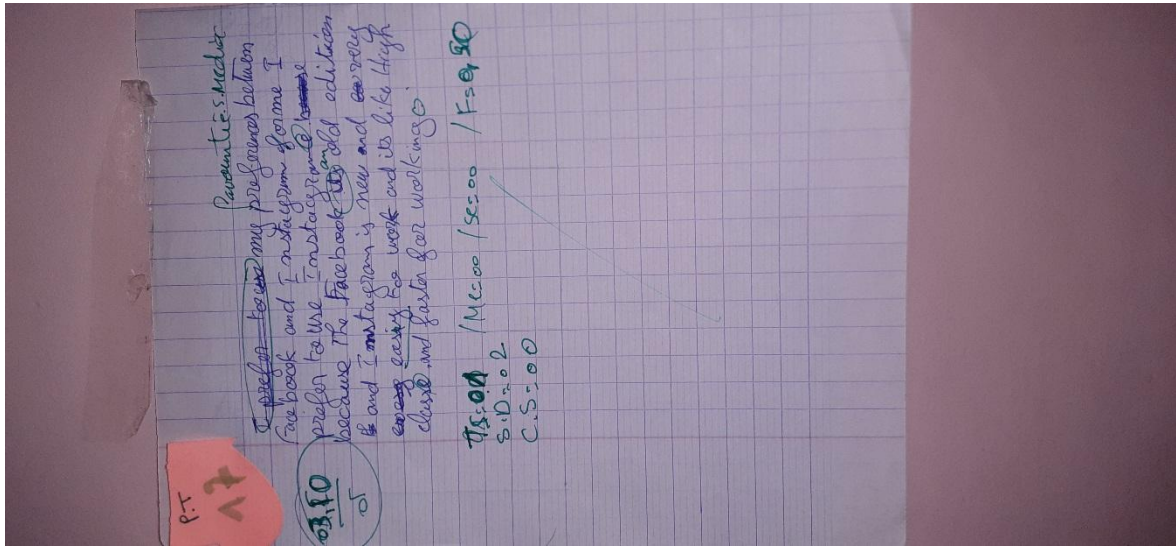 P.T
17
03,50
05
Favourite S.Media
I prefer to use my preferences between
Facebook and Instagram for me I
prefer to use Instagram
because the Facebook its an old edition
and Instagram is new and very
easing to work and its like High
class and faster for working.
TS=01 /Me=00 /Se=00 /F=0,50
S.D=02
C.S=00